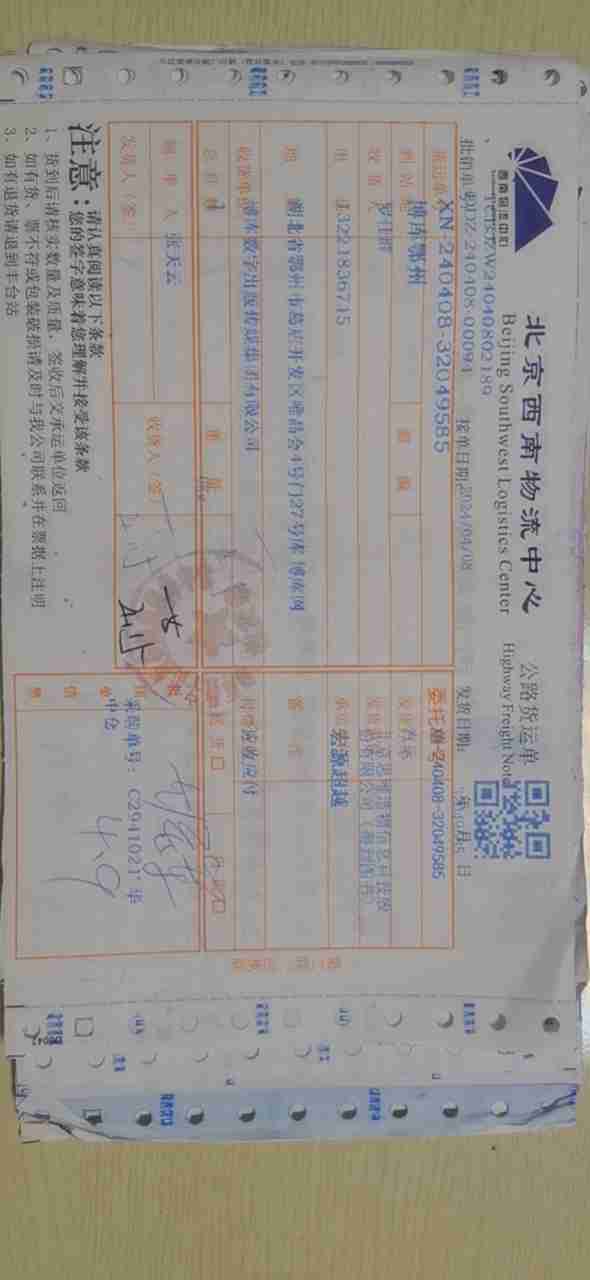 西南物流中心
北京西南物流中心
Beijing Southwest Logistics Center
公路货运单
Highway Freight Note
TCTSTZW24040802189
批销单号DZ-240408-00094
接单日期2024/04/08
发货日期:
年
月
日
XN-240408-32049585
委托单号240408-32049585
到站
博库鄂州
收货人
罗仕群
电话
13221836715
承运
宏源超越
地
湖北省鄂州市葛店开发区唯品会4号门27号库 博库网
收货单位
博库数字出版传媒集团有限公司
付费
应收应付
总件数
1
重量
制单人
张天云
发货人(签)
收货人(签)
采购单号: C2941021 华中仓
4.9
注意:
请认真阅读以下条款
您的签字意味着您理解并接受该条款
1、货到后请核实数量及质量,签收后交承运单位返回
2、如有货、票不符或包装破损请及时与我公司联系并在票据上注明
3、如有退货请退到丰台站